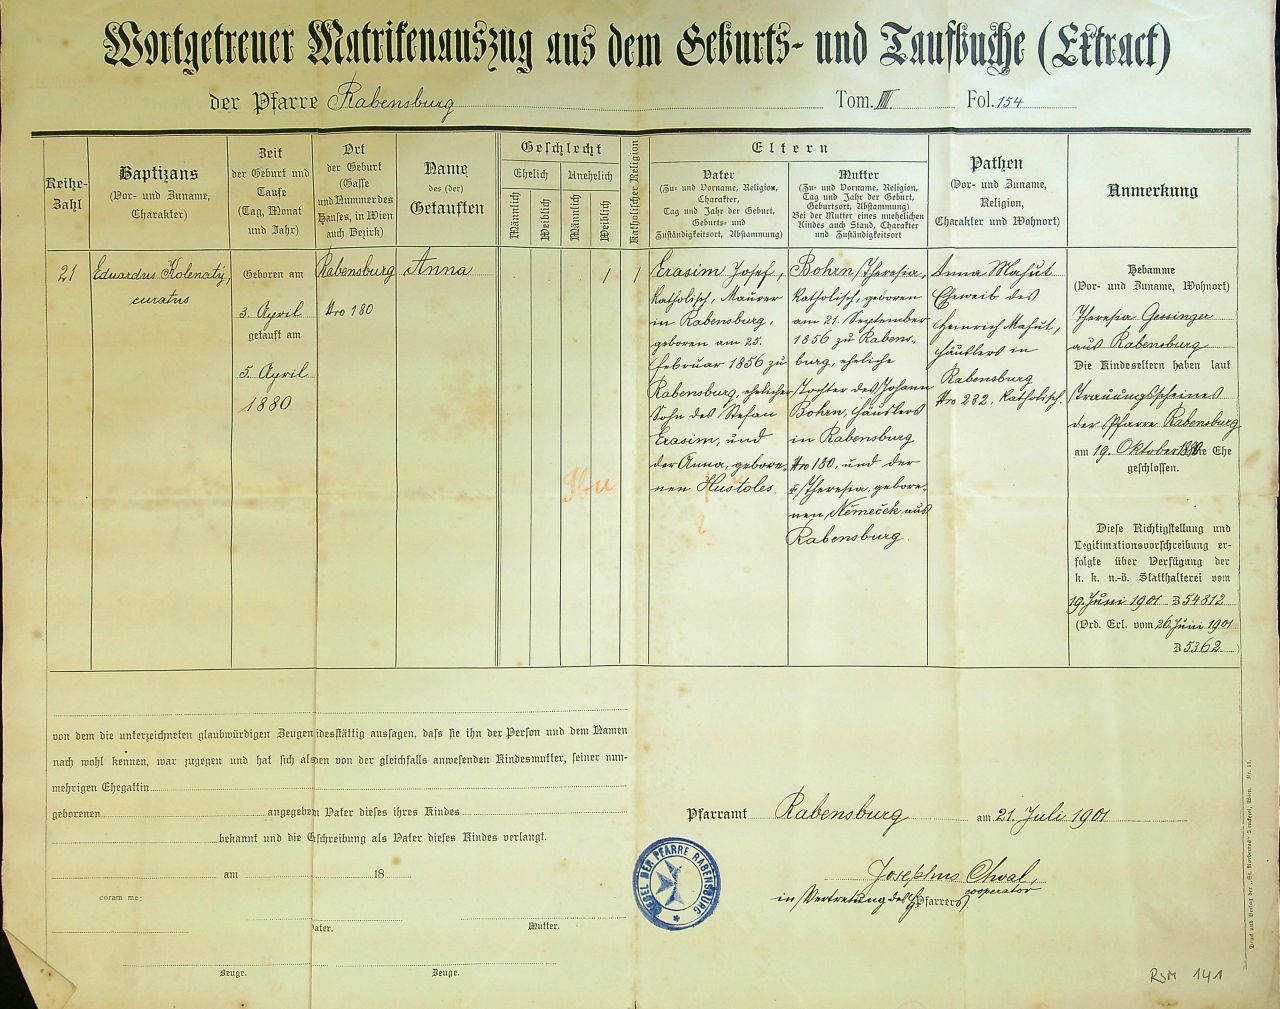 Wortgetreuer Matrikenauszug aus dem Geburts- und Taufbuche (Extract)
der Pfarre Rabensburg Tom. III. Fol. 154
Reihe-
Zahl
Baptizans
(Vor- und Zuname,
Charakter)
Zeit
der Geburt und
Taufe
(Tag, Monat
und Jahr)
Ort
der Geburt
(Gasse
und Nummer des
Hauses, in Wien
auch Bezirk)
Name
des (der)
Getauften
Geschlecht
Ehelich
Unehelich
Männlich
Weiblich
Männlich
Weiblich
Katholischer Religion
Eltern
Vater
(Zu- und Vorname, Religion,
Charakter,
Tag und Jahr der Geburt,
Geburts- und
Zuständigkeitsort, Abstammung)
Mutter
(Zu- und Vorname, Religion,
Tag und Jahr der Geburt,
Geburtsort, Abstammung)
Bei der Mutter eines unehelichen
Kindes auch Stand, Charakter
und Zuständigkeitsort
Pathen
(Vor- und Zuname,
Religion,
Charakter und Wohnort)
Anmerkung
21
Eduardus Kolenatý,
curatus
Geboren am
3. April
getauft am
5. April
1880
Rabensburg
Nro 180
Anna
1
1
Erasim Josef,
katholisch, Maurer
in Rabensburg,
geboren am 25.
Februar 1856 zu
Rabensburg, ehelicher
Sohn des Stefan
Erasim, und
der Anna, gebore-
nen Hustoles.
Bohrn Theresia,
katholisch, geboren
am 21. September
1856 zu Rabens-
burg, eheliche
Tochter des Johann
Bohrn, Häuslers
in Rabensburg
Nro 180, und der
Theresia, gebore-
nen Němeček aus
Rabensburg.
Anna Mahut
Eheweib des
Heinrich Mahut,
Häuslers in
Rabensburg
Nro 282, katholisch.
Hebamme
(Vor- und Zuname, Wohnort)
Theresia Gessinger
aus Rabensburg
Die Kindeseltern haben laut
Trauungsscheines
der Pfarre Rabensburg
am 19. Oktober die Ehe
geschlossen.
Diese Richtigstellung und
Legitimationsvorschreibung er-
folgte über Verfügung der
k. k. n.-ö. Statthalterei vom
19. Juni 1901 Z 54812
(Ord. Erl. vom 26. Juni 1901
Z 5362.)
von dem die unterzeichneten glaubwürdigen Zeugen eidesstättig aussagen, dass sie ihn der Person und dem Namen
nach wohl kennen, war zugegen und hat sich als den von der gleichfalls anwesenden Kindesmutter, seiner nun-
mehrigen Ehegattin
geborenen angegebenen Vater dieses ihres Kindes
bekannt und die Einschreibung als Vater dieses Kindes verlangt.
am 18
coram me:
Vater. Mutter.
Zeuge. Zeuge.
Pfarramt Rabensburg am 21. Juli 1901
SIEGEL DER PFARRE RABENSBURG
Josephus Chval,
cooperator
in Vertretung des Pfarrers
Druck und Verlag der „St. Norbertus" Druckerei, Wien. Nr. 11.
RSM 141